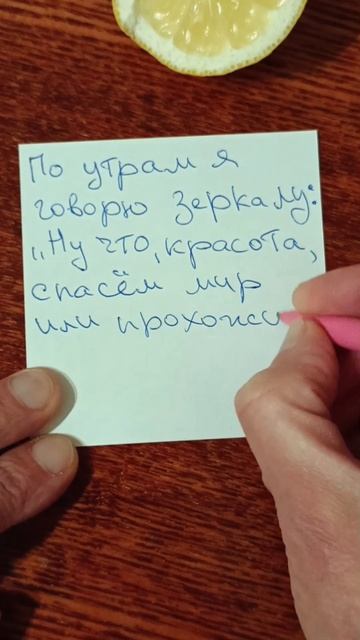 По утрам я
говорю зеркалу:
„Ну что, красота,
спасём мир
или прохожи